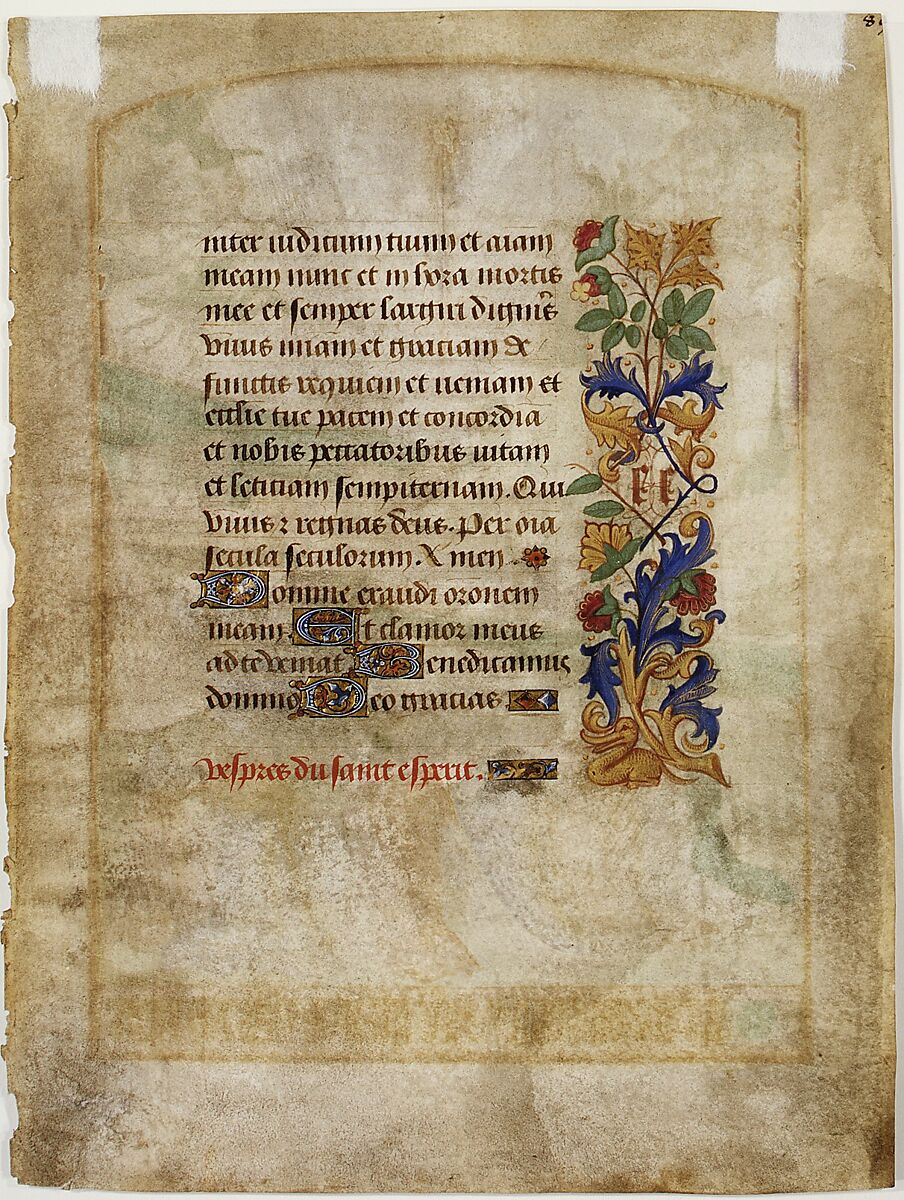 inter iudicium tuum et aīam
meam nunc et in hora mortis
mee et semper largiri digneris
viuis mīam et gratiam de
functis requiem et ueniam et
ecclīe tue pacem et concordia
et nobis peccatoribus uitam
et leticiam sempiternam. Qui
viuis ⁊ regnas deus. Per oīa
secula seculorum. Amen
Domine exaudi orōnem
meam. Et clamor meus
ad te veniat Benedicamus
domino Deo gracias
vespres du saint esperit.